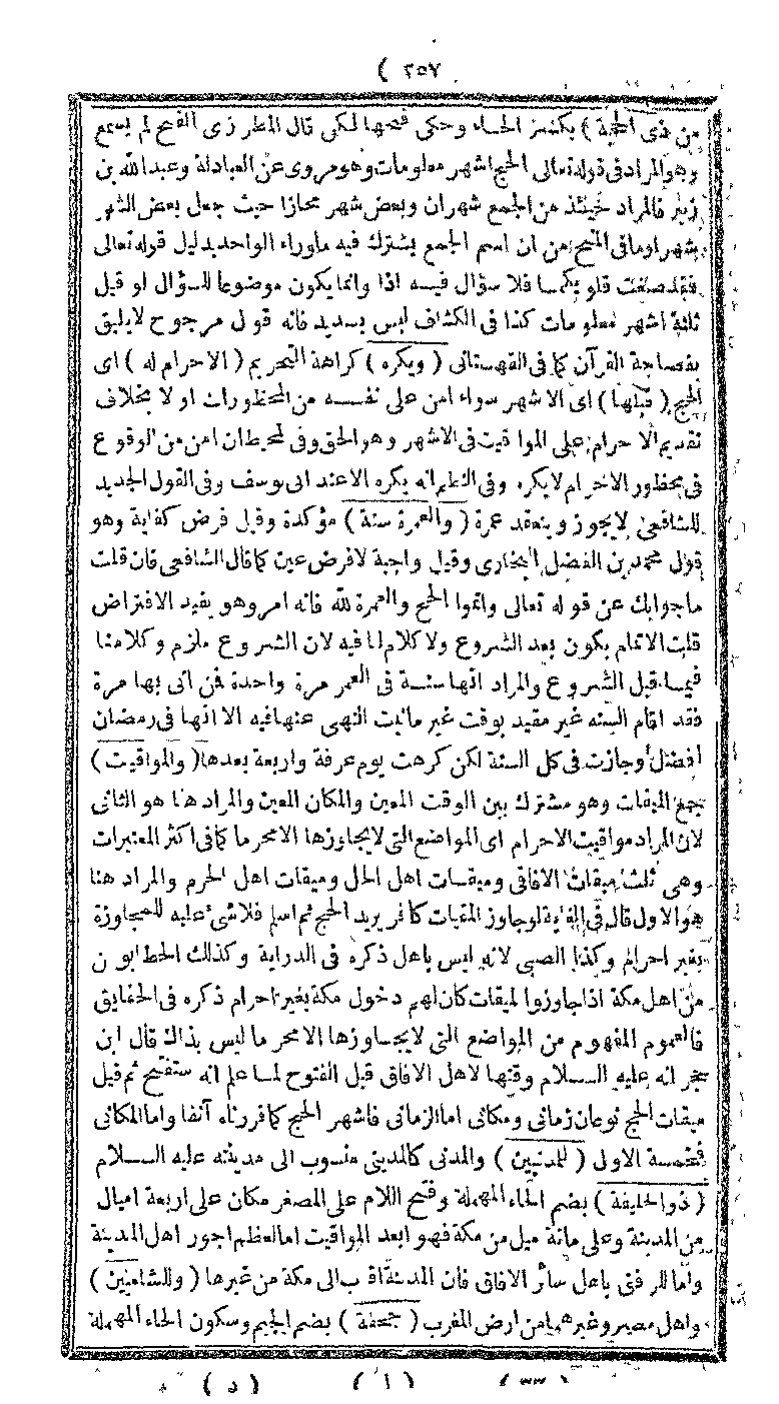 ( ٢٥٧
من ذى الحجة ) بكسر الحاء وحكى فتحها لكن قال المطرزى الفتح لم يسمع
وهو المراد فى قوله تعالى الحج اشهر معلومات وهو مروى عن العبادلة وعبد الله بن
زبير فالمراد حينئذ من الجمع شهران وبعض شهر مجازا حيث جعل بعض الشهر
شهرا وما فى المنح من ان اسم الجمع يشترك فيه ماوراء الواحد بدليل قوله تعالى
فقد صغت قلوبكما فلا سؤال فيه اذا وانما يكون موضوعا للسؤال لو قيل
ثلثة اشهر معلومات كذا فى الكشاف ليس بسديد فانه قول مرجوح لا يليق
بفصاحة القرآن كما فى القهستانى ( ويكره ) كراهة التحريم ( الاحرام له ) اى
الحج ( قبلها ) اى الاشهر سواء امن على نفسه من المحظورات او لا بخلاف
تقديم الاحرام على المواقيت فى الاشهر وهو الحق وفى المحيط ان امن من الوقوع
فى محظور الاحرام لا يكره وفى النظم انه يكره الا عند ابى يوسف وفى القول الجديد
للشافعى لا يجوز وينعقد عمرة ( والعمرة سنة ) مؤكدة وقيل فرض كفاية وهو
قول محمد بن الفضل البخارى وقيل واجبة لا فرض عين كما قال الشافعى فان قلت
ما جوابك عن قوله تعالى واتموا الحج والعمرة لله فانه امر وهو يفيد الافتراض
قلت الاتمام يكون بعد الشروع ولا كلام لنا فيه لان الشروع ملزم وكلامنا
فيما قبل الشروع والمراد انها سنة فى العمر مرة واحدة فمن اتى بها مرة
فقد اقام السنة غير مقيد بوقت غير ماثبت النهى عنها فيه الا انها فى رمضان
افضل وجازت فى كل السنة لكن كرهت يوم عرفة واربعة بعدها ( والمواقيت )
جمع الميقات وهو مشترك بين الوقت المعين والمكان المعين والمراد هنا هو الثانى
لان المراد مواقيت الاحرام اى المواضع التى لا يجاوزها الا محرما كما فى اكثر المعتبرات
وهى ثلث ميقات الافاقى وميقات اهل الحل وميقات اهل الحرم والمراد هنا
هو الاول قال فى الغاية لو جاوز الميقات كافر يريد الحج ثم اسلم فلا شئ عليه للمجاوزة
بغير احرام وكذا الصبى لانه ليس باهل ذكره فى الدراية وكذلك الحطابون
من اهل مكة اذا جاوزوا الميقات كان لهم دخول مكة بغير احرام ذكره فى الحقايق
فالعموم المفهوم من المواضع التى لا يجاوزها الا محرما ليس بذاك قال ابن
حجر انه عليه السلام وقتها لاهل الافاق قبل الفتوح لما علم انه ستفتح ثم قيل
ميقات الحج نوعان زمانى ومكانى اما الزمانى فاشهر الحج كما قررناه آنفا واما المكانى
فخمسة الاول ( للمدنيين ) والمدنى كالمدينى منسوب الى مدينته عليه السلام
( ذو الحليفة ) بضم الحاء المهملة وفتح اللام على المصغر مكان على اربعة اميال
من المدينة وعلى مائة ميل من مكة فهو ابعد المواقيت اما لعظم اجور اهل المدينة
واما للرفق باهل سائر الافاق فان المدينة اقرب الى مكة من غيرها ( وللشاميين )
واهل مصر وغيرهما من ارض المغرب ( جحفة ) بضم الجيم وسكون الحاء المهملة
( ٣٣ ) ( ١ ) ( د )